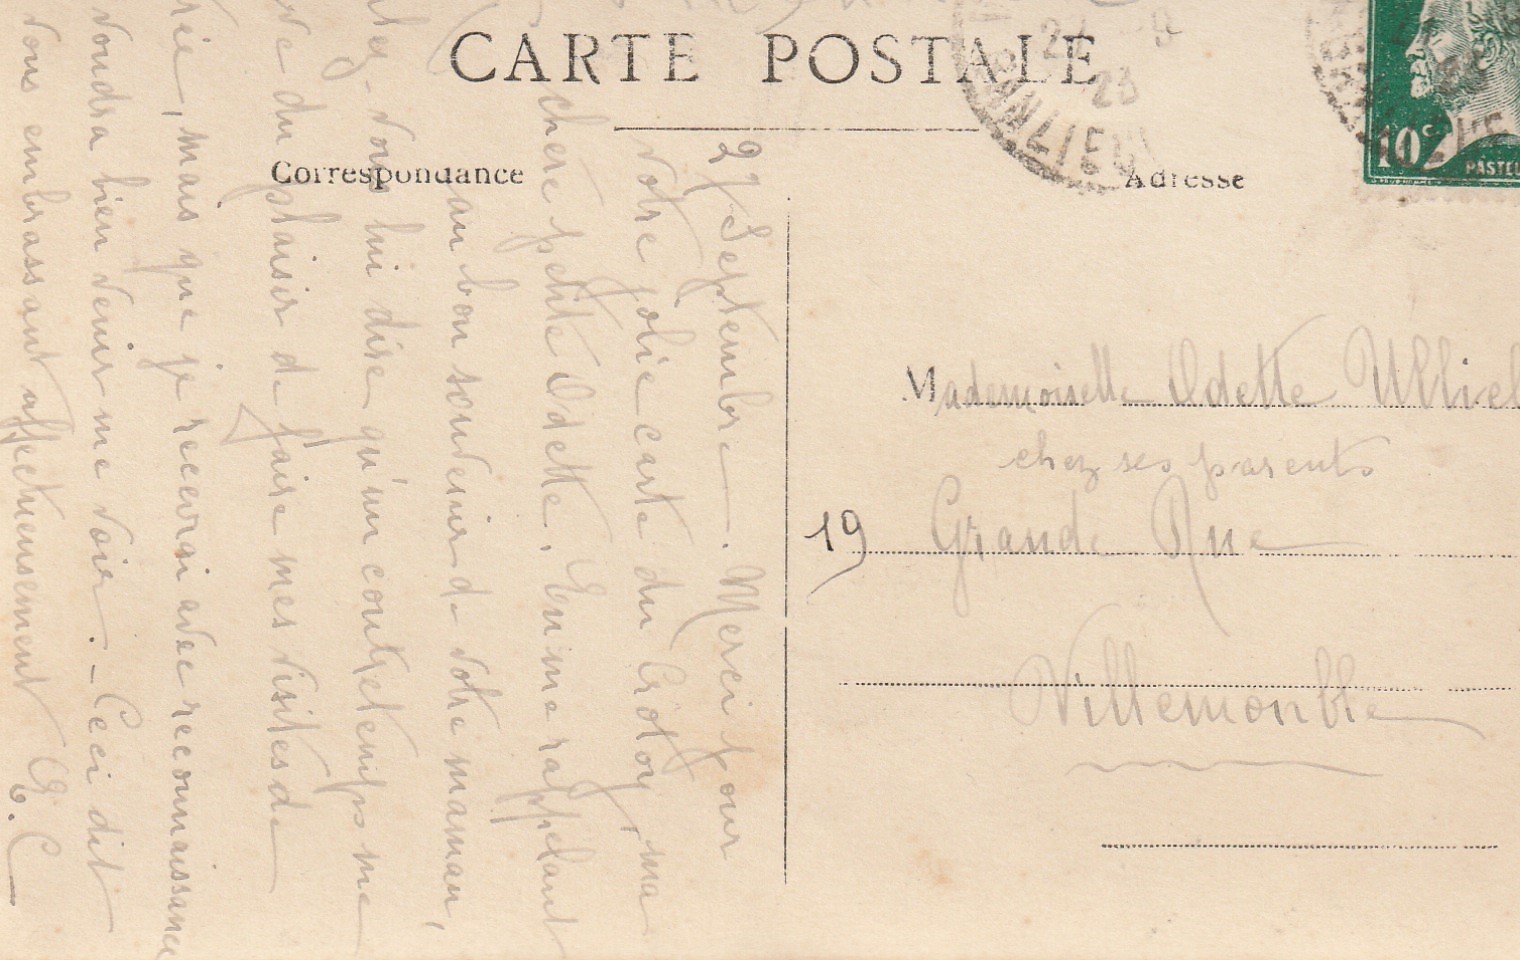 CARTE POSTALE
Correspondance
Adresse
27 Septembre. Merci pour
votre jolie carte du Crotoy, ma
chère petite Odette. En me rappelant
au bon souvenir de votre maman,
vous lui dire qu'un contretemps me
du plaisir de faire mes visites de
mais que je recevrai avec reconnaissance
voudra bien venir me voir. - Ceci dit
vous embrassant affectueusement E. C
Mademoiselle Odette Ulliel
chez ses parents
19 Grande Rue
Villemomble
10c
PASTEU
23